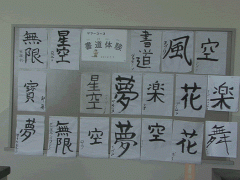 無限
星空
書道体験
書道
風
空
寶
星空
夢
楽
花
楽
夢
無限
空
夢
空
花
舞